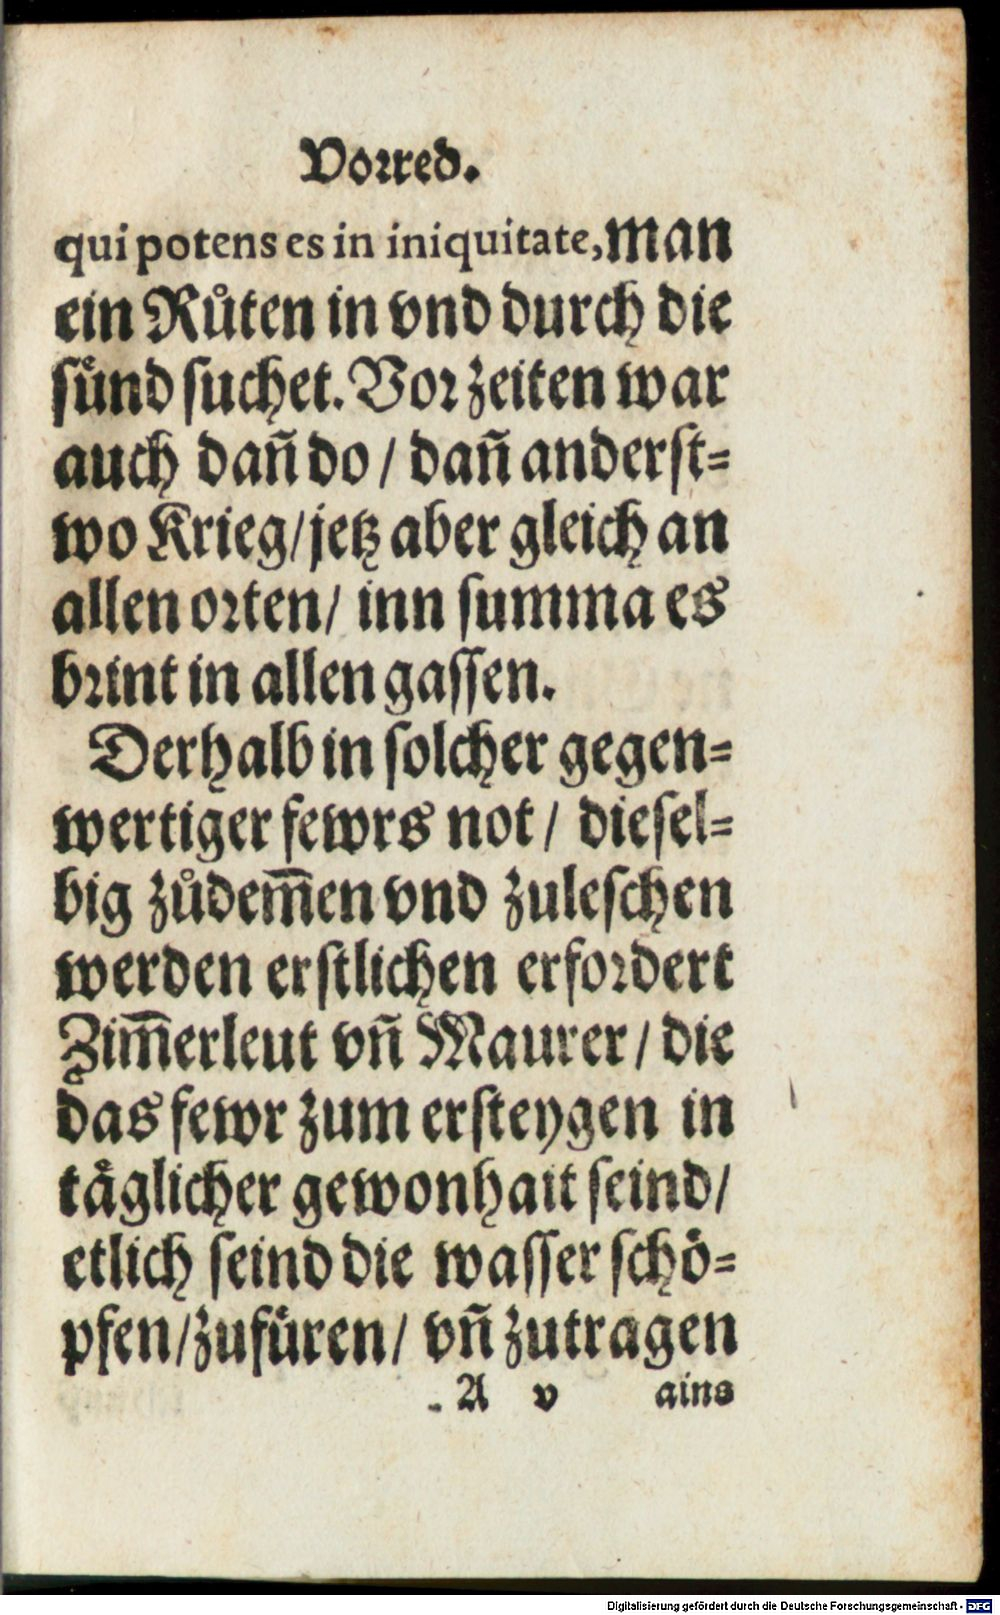 Vorred.
qui potens es in iniquitate, man
ein Růten in vnd durch die
suͤnd suchet. Vor zeiten war
auch dañ do / dañ anderst=
wo Krieg / jetz aber gleich an
allen orten / inn summa es
brint in allen gassen.
Derhalb in solcher gegen=
wertiger fewrs not / diesel=
big zůdem̄en vnd zuleschen
werden erstlichen erfordert
Zim̄erleut vñ Maurer / die
das fewr zum ersteygen in
taͤglicher gewonhait seind /
etlich seind die wasser schoͤ=
pfen / zufuͤren / vñ zutragen
A v ains
Digitalisierung gefördert durch die Deutsche Forschungsgemeinschaft - DFG